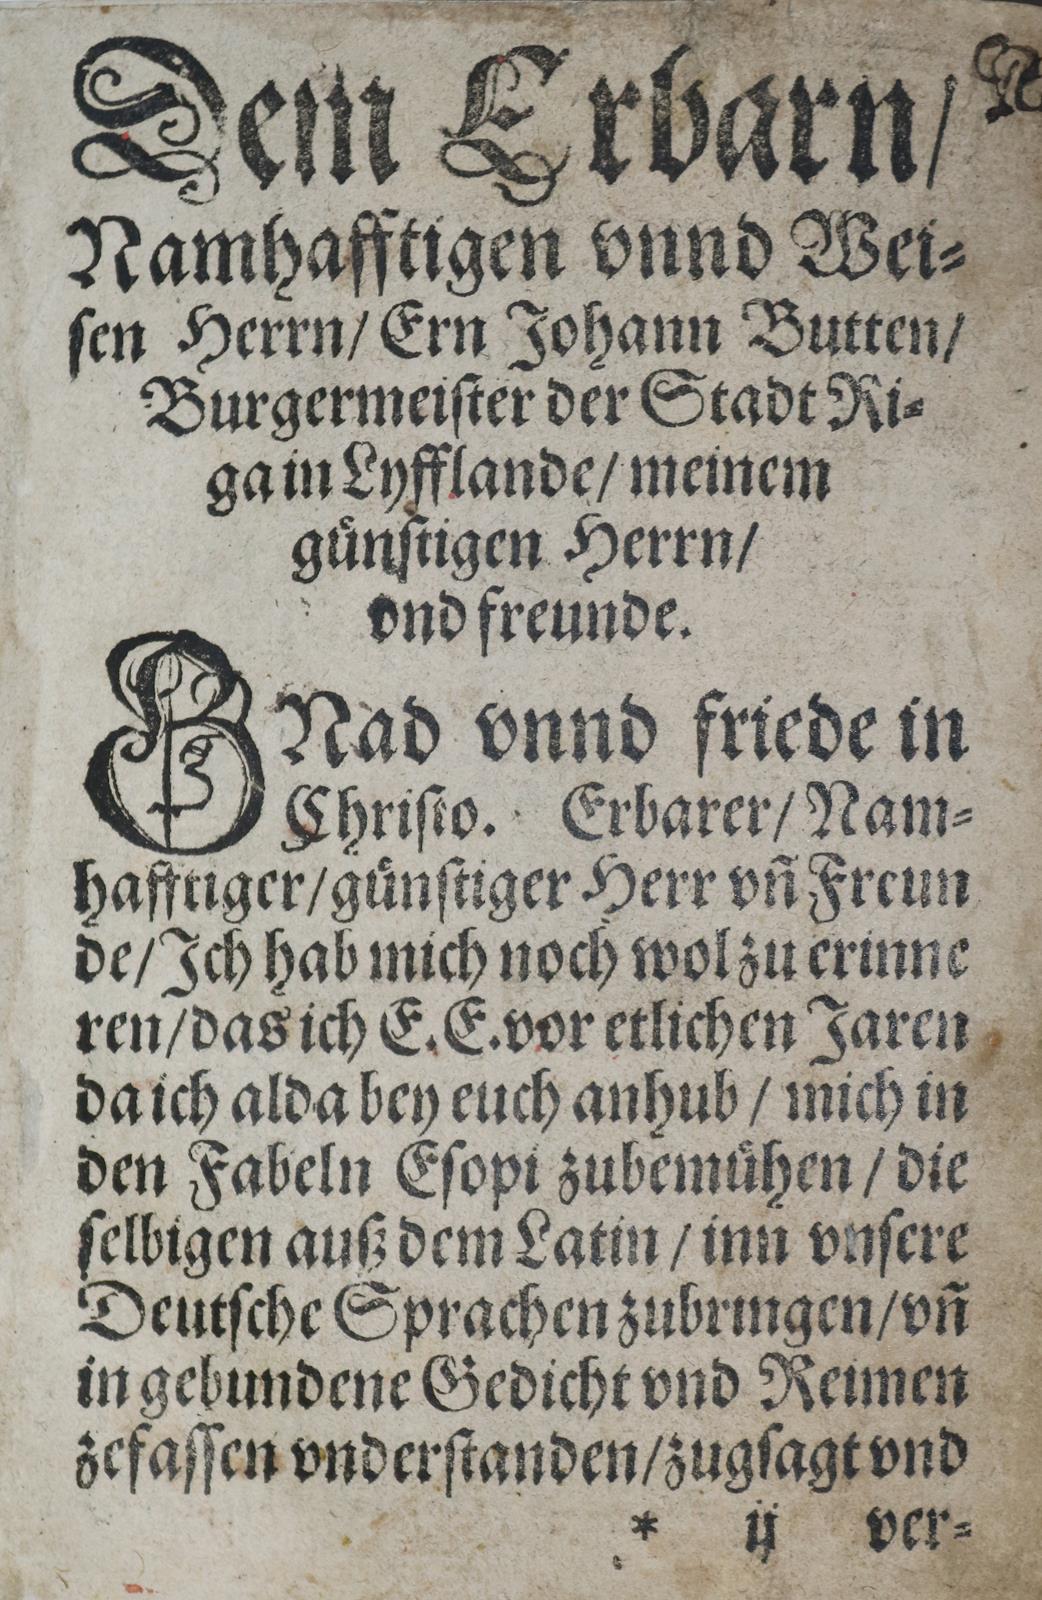 Dem Erbarn/
Namhafftigen vnnd Wei⸗
sen Herrn/ Ern Johann Butten/
Burgermeister der Stadt Ri⸗
ga in Lyfflande/ meinem
guͤnstigen Herrn/
vnd freunde.
GNad vnnd friede in
Christo. Erbarer/ Nam⸗
hafftiger/ guͤnstiger Herr vñ Freun
de/ Ich hab mich noch wol zu erinne
ren/ das ich E.E. vor etlichen Jaren
da ich alda bey euch anhub / mich in
den Fabeln Esopi zubemuͤhen / die
selbigen auß dem Latin / inn vnsere
Deutsche Sprachen zubringen/ vñ
in gebundene Gedicht vnd Reimen
zefassen vnderstanden/ zugsagt vnd
* ij ver⸗